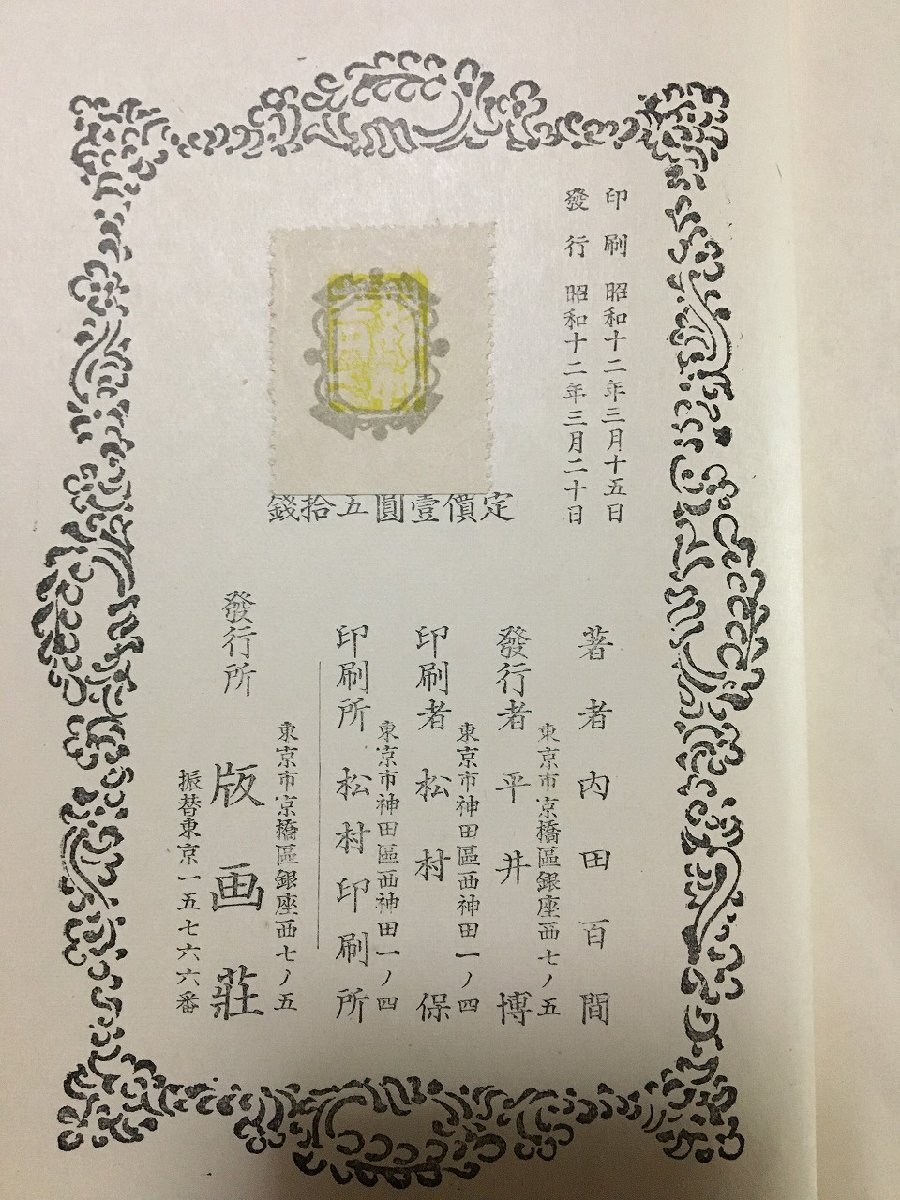 印刷 昭和十二年三月十五日
發行 昭和十二年三月二十日
定價壹圓五拾錢
著者 內田百間
東京市京橋區銀座西七ノ五
發行者 平井博
東京市神田區西神田一ノ四
印刷者 松村保
東京市神田區西神田一ノ四
印刷所 松村印刷所
東京市京橋區銀座西七ノ五
發行所 版画莊
振替東京一五七六六番